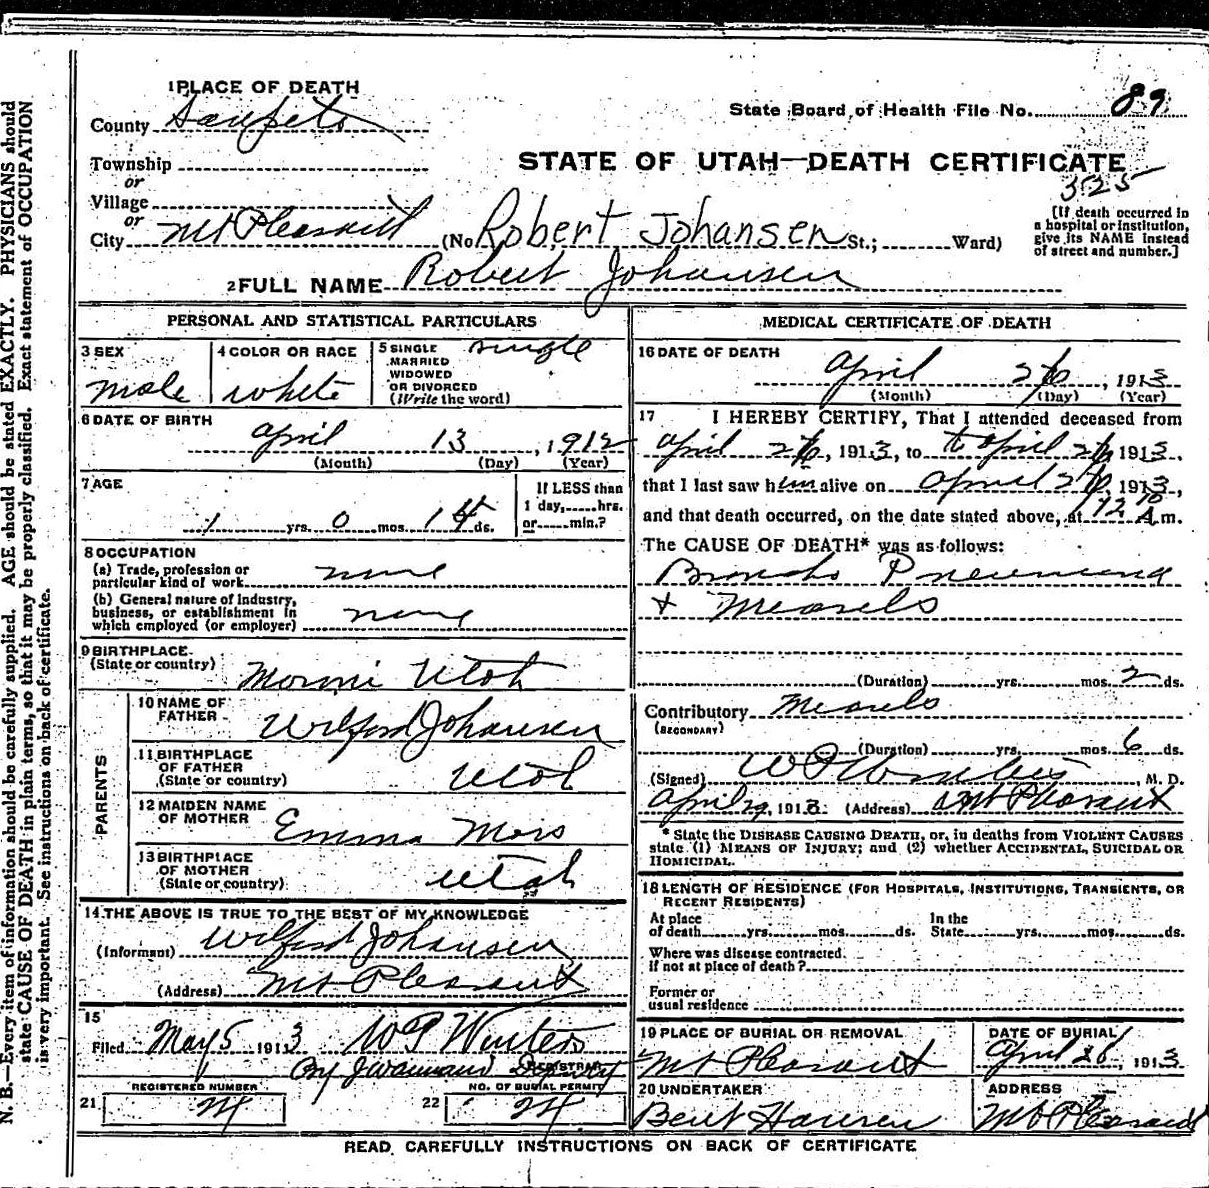 N. B.—Every item of information should be carefully supplied. AGE should be stated EXACTLY. PHYSICIANS should
state CAUSE OF DEATH in plain terms, so that it may be properly classified. Exact statement of OCCUPATION
is very important. See instructions on back of certificate.
1 PLACE OF DEATH
County Sanpete
State Board of Health File No. 89
Township
or
STATE OF UTAH—DEATH CERTIFICATE
325
Village
or
City Mt Pleasant (No. Robert Johansen St.; Ward)
[If death occurred in
a hospital or institution,
give its NAME instead
of street and number.]
2 FULL NAME Robert Johansen
PERSONAL AND STATISTICAL PARTICULARS
3 SEX
male
4 COLOR OR RACE
white
5 SINGLE
MARRIED
WIDOWED
OR DIVORCED
(Write the word)
single
6 DATE OF BIRTH
April 13, 1912
(Month) (Day) (Year)
7 AGE
1 yrs. 0 mos. 14 ds.
If LESS than
1 day, hrs.
or min.?
8 OCCUPATION
(a) Trade, profession or
particular kind of work none
(b) General nature of Industry,
business, or establishment in
which employed (or employer) none
9 BIRTHPLACE
(State or country) Moroni Utah
PARENTS
10 NAME OF
FATHER Wilford Johansen
11 BIRTHPLACE
OF FATHER
(State or country) Utah
12 MAIDEN NAME
OF MOTHER Emma
13 BIRTHPLACE
OF MOTHER
(State or country) Utah
14 THE ABOVE IS TRUE TO THE BEST OF MY KNOWLEDGE
(Informant) Wilford Johansen
(Address) Mt Pleasant
15
Filed May 5 1913 W P Winters
REGISTRAR
REGISTERED NUMBER NO. OF BURIAL PERMIT
21 22
MEDICAL CERTIFICATE OF DEATH
16 DATE OF DEATH
April 26, 1913
(Month) (Day) (Year)
17 I HEREBY CERTIFY, That I attended deceased from
April 26, 1913, to to April 26, 1913,
that I last saw him alive on April 26, 1913,
and that death occurred, on the date stated above, at A.m.
The CAUSE OF DEATH* was as follows:
Broncho Pneumonia
+ Measels
(Duration) yrs. mos. 2 ds.
Contributory Measels
(SECONDARY)
(Duration) yrs. mos. 6 ds.
(Signed) M. D.
April 29, 1913 (Address) Mt Pleasant
* State the DISEASE CAUSING DEATH, or, in deaths from VIOLENT CAUSES
state (1) MEANS OF INJURY; and (2) whether ACCIDENTAL, SUICIDAL OR
HOMICIDAL.
18 LENGTH OF RESIDENCE (FOR HOSPITALS, INSTITUTIONS, TRANSIENTS, OR
RECENT RESIDENTS)
At place
of death yrs. mos. ds.
In the
State yrs. mos. ds.
Where was disease contracted.
if not at place of death?
Former or
usual residence
19 PLACE OF BURIAL OR REMOVAL
Mt Pleasant
DATE OF BURIAL
April 26, 1913
20 UNDERTAKER
Bent Hansen
ADDRESS
Mt Pleasant
READ CAREFULLY INSTRUCTIONS ON BACK OF CERTIFICATE